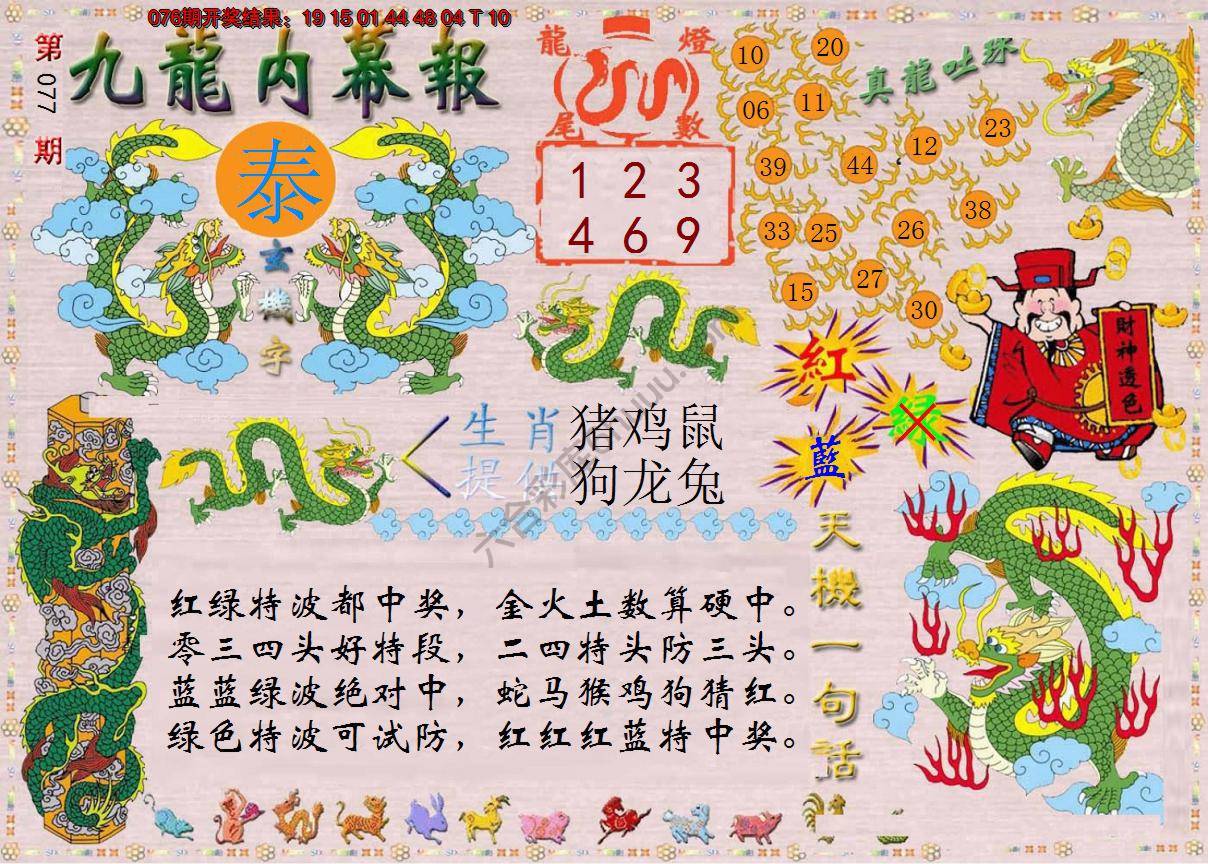 076期开奖结果：19 15 01 44 48 04 T 10
第077期
九龍内幕報
泰
玄機字
龍燈
尾數
1 2 3
4 6 9
真龍吐珠
10 20
06 11
12 23
39 44
33 25 26 38
15 27 30
財神透色
紅
绿
藍
生肖 猪鸡鼠
提供 狗龙兔
天機一句話
红绿特波都中奖，金火土数算硬中。
零三四头好特段，二四特头防三头。
蓝蓝绿波绝对中，蛇马猴鸡狗猜红。
绿色特波可试防，红红红蓝特中奖。